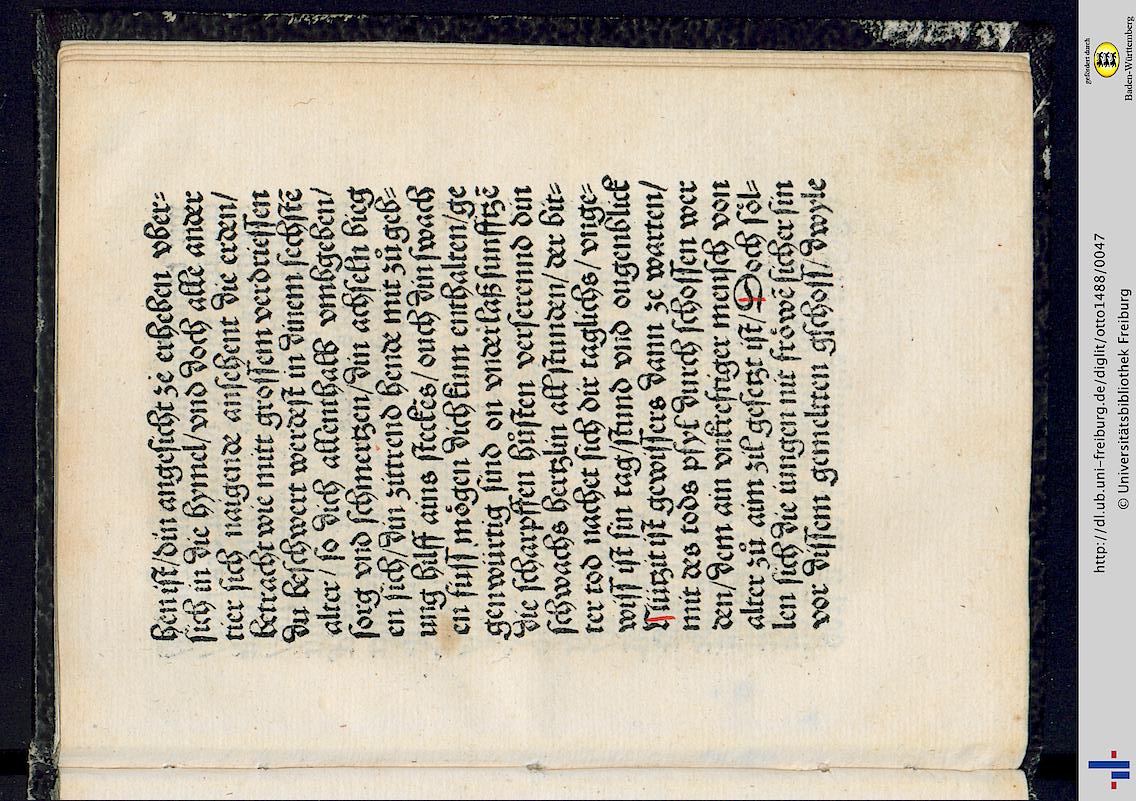 hen ist/din angesicht ze erheben vber⸗
sich in die hymel/vnd doch alle ander
tier sich naigende ansehent die erden/
betracht wie mitt grossem verdriessen
du beschwert werdest in dinem sechstē
alter/so dich allenthalb vmbgeben/
sorg vnd schmertzen/din achseln bieg
en sich/din zittrend hende mit zů geb⸗
ung hilff ains steckes/ouch din swach
en füss mögen dich kum enthalten/ge
genwürtig sind on vnderlaß sunfftzē
die scharpffen hůsten verserennd din
schwachs hertzlin all stunden/der bit⸗
ter tod nachet sich dir taglichs/vnge⸗
wiss ist sin tag/stund vnd ougenblick
Nützit ist gewissers dann ze warten/
mit des tods pfyl durch schossen wer
den/dem ain vnkrefftiger mensch von
alter zů aim zil gesetzt ist/Doch söl⸗
len sich die iungen nit fröwē sicher sin
vor dissem gemelten gschoss/dwyle
gefördert durch
Baden-Württemberg
http://dl.ub.uni-freiburg.de/diglit/otto1488/0047
© Universitätsbibliothek Freiburg